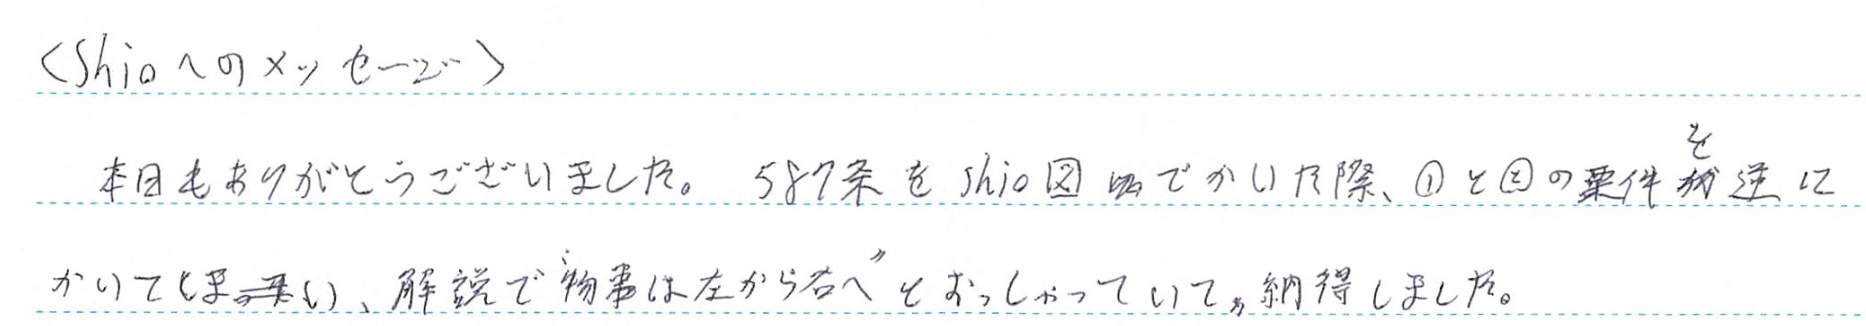 <Shioへのメッセージ>
本日もありがとうございました。 587条をshio図でかいた際、①と②の要件を逆に
かいてしまい、解説で"物事は左から右へ"とおっしゃっていて、納得しました。